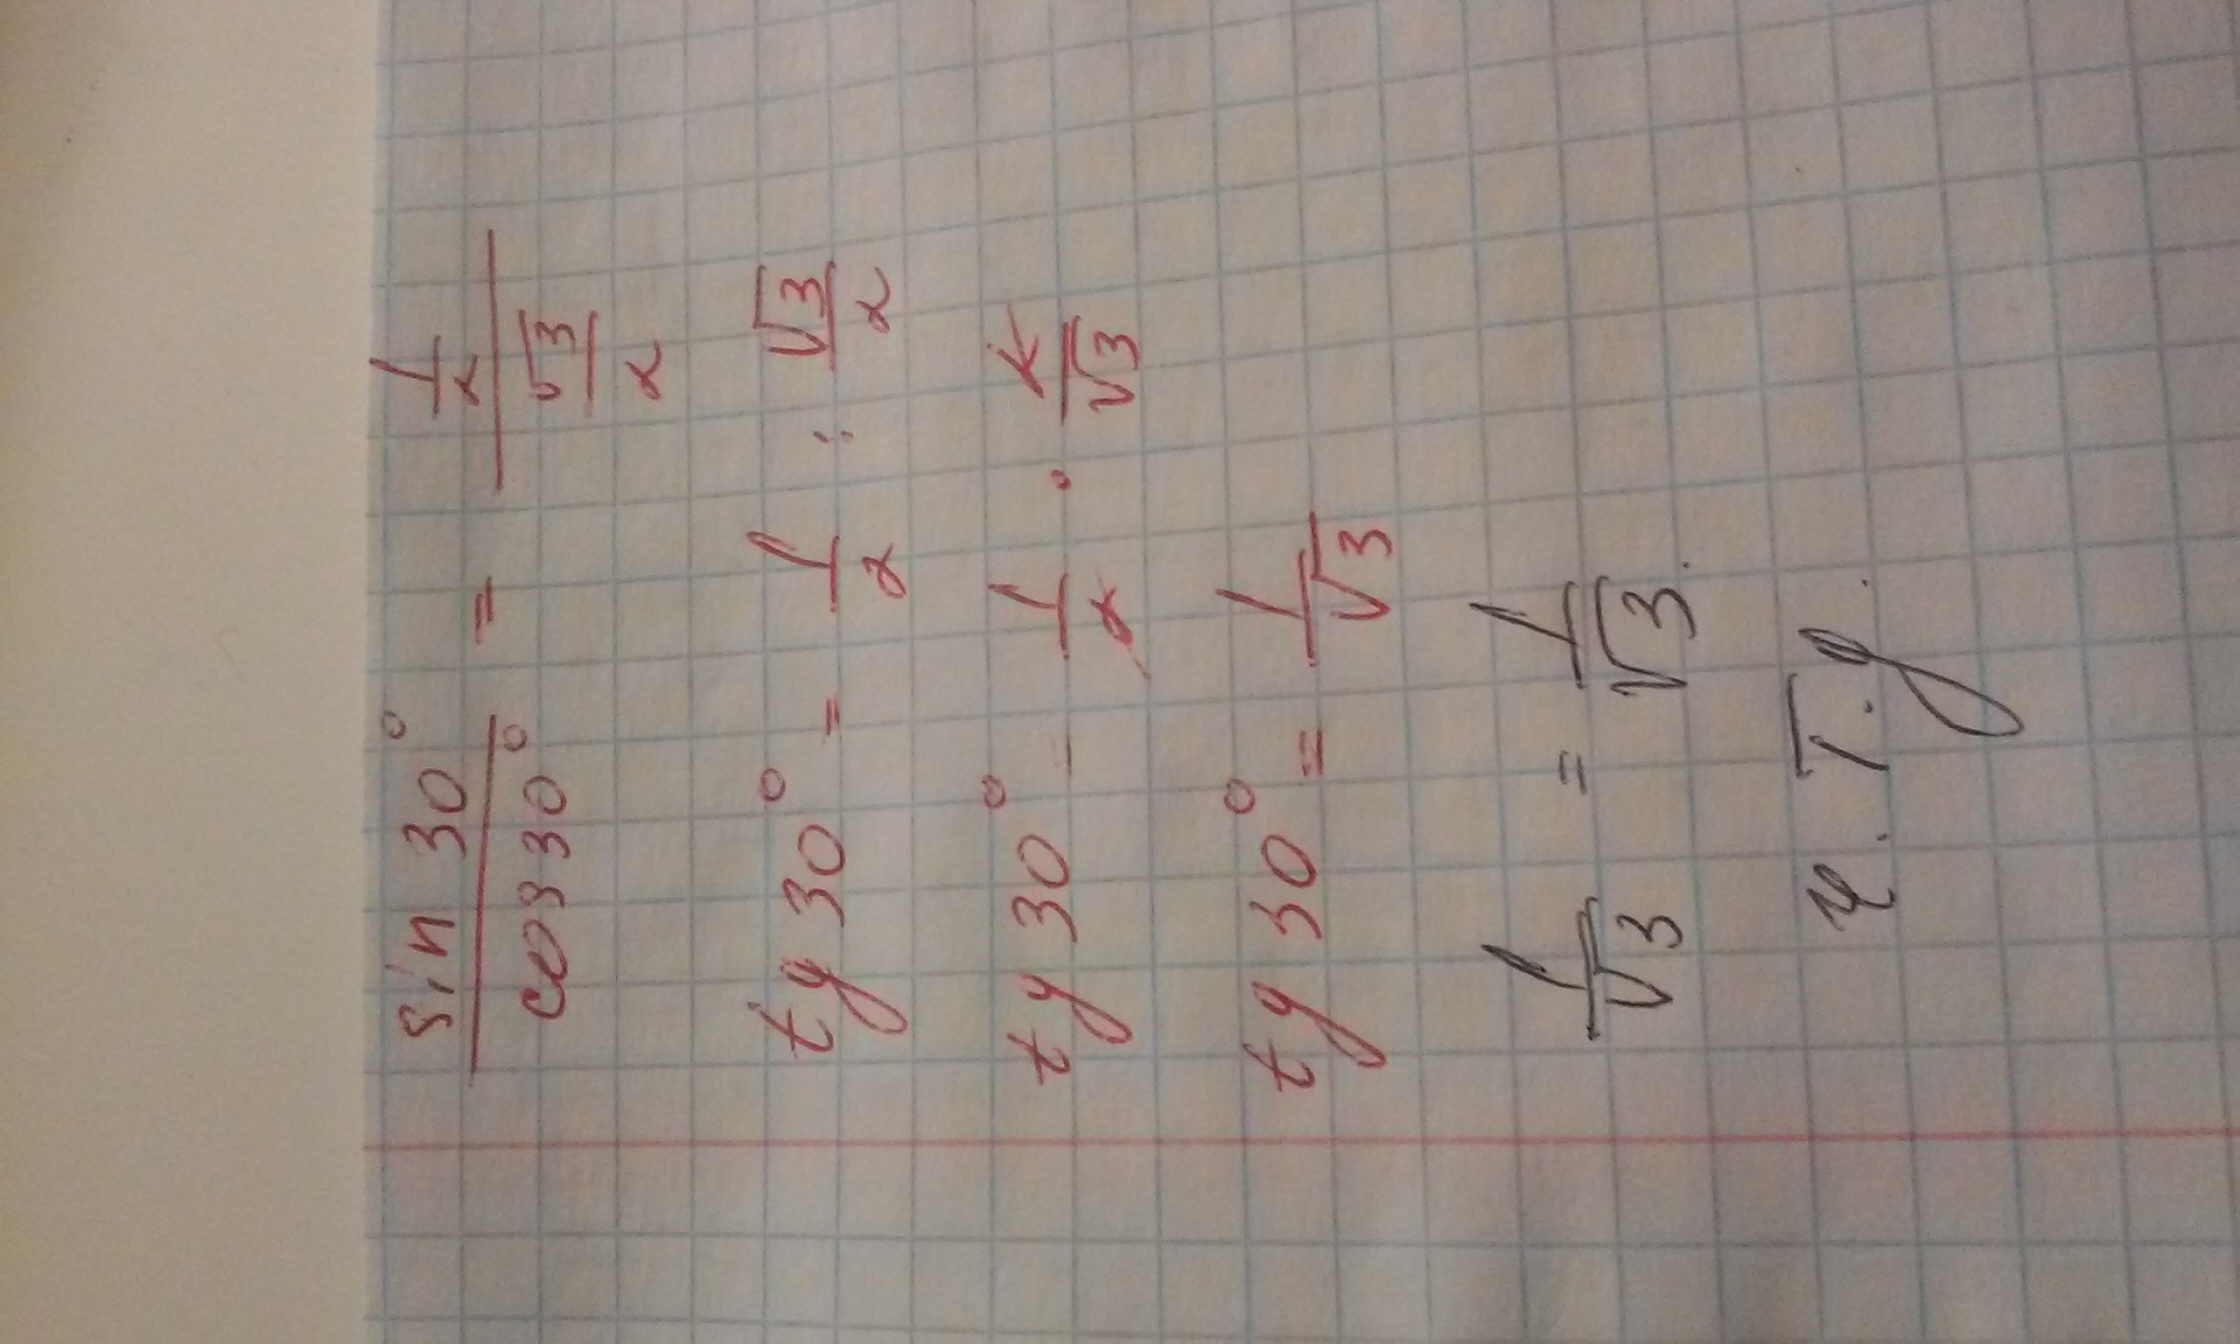 sin 30° / cos 30° = (1/2) / (√3/2)
tg 30° = 1/2 : √3/2
tg 30° - 1/2 · 2/√3
tg 30° = 1/√3
1/√3 = 1/√3.
ч. Т. д.